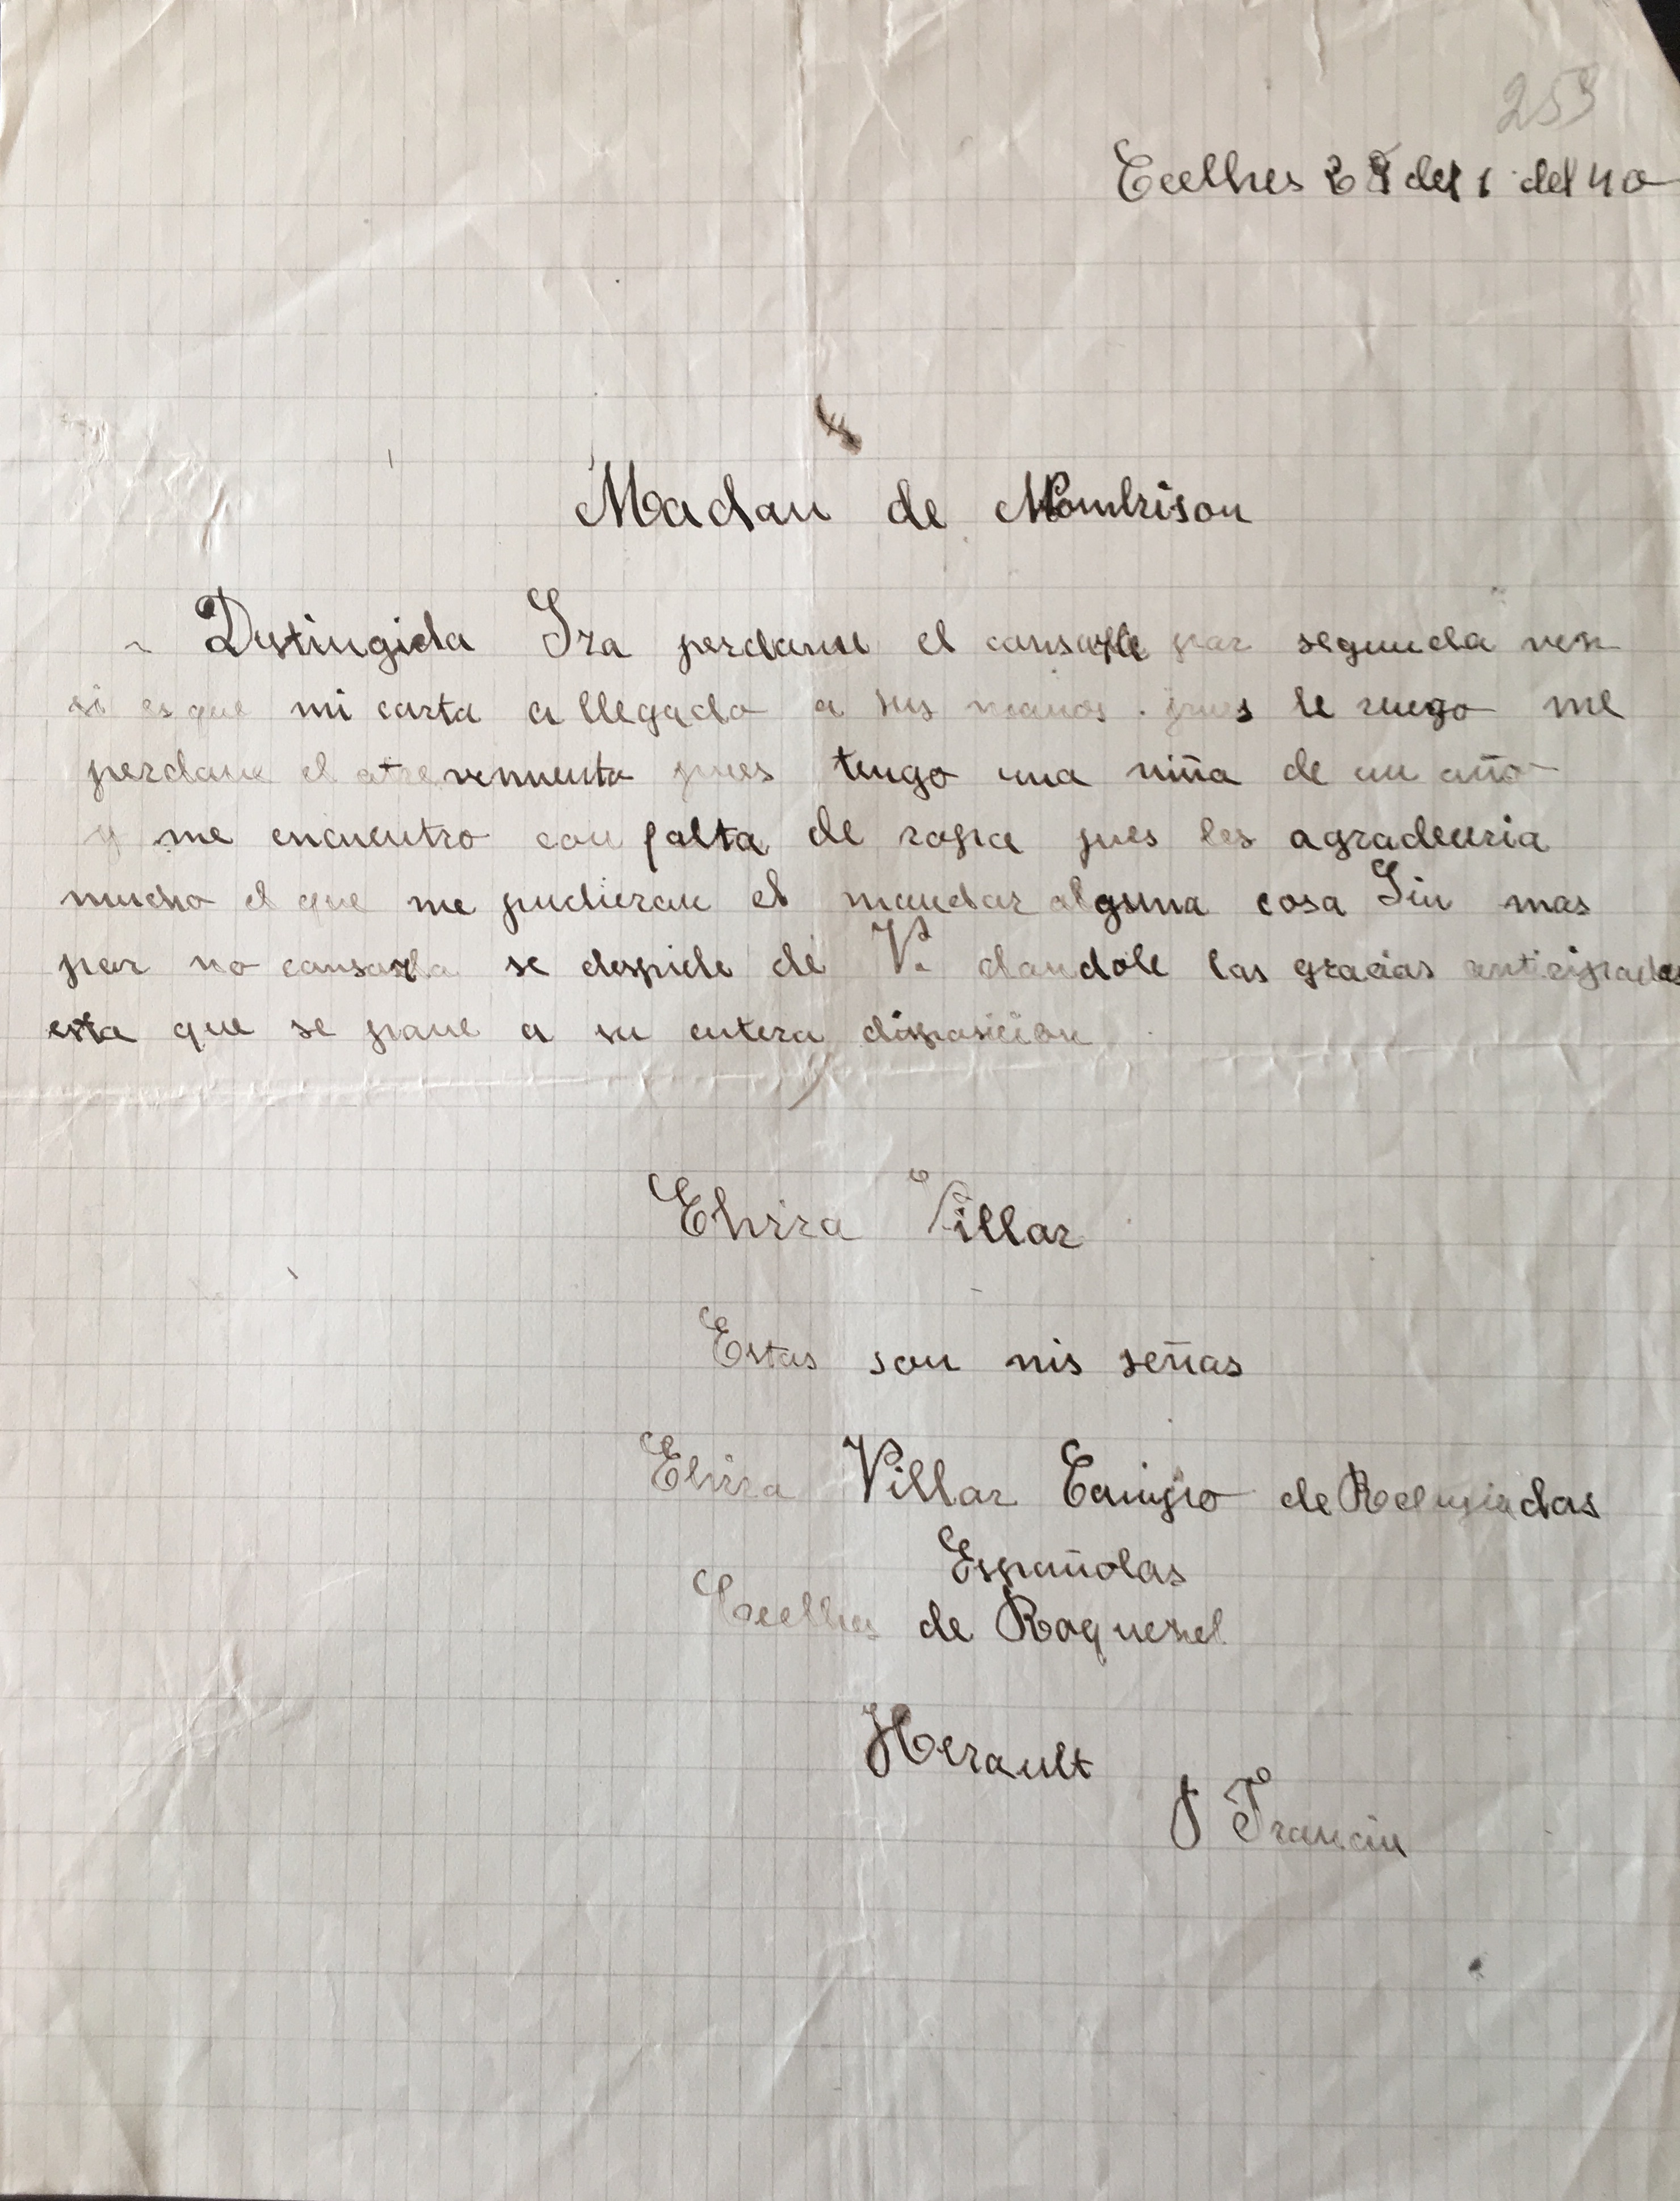 253
Ceelhes 28 del 1 del 40
Madan de Mombrison
Distingida Sra perdone el cansarle por segunda ves
si es que mi carta a llegado a sus manos. pues le ruego me
perdone el atrevimiento pues tengo una niña de un año
y me encuentro con falta de ropa pues les agradeceria
mucho el que me pudieran el mandar alguna cosa Sin mas
por no cansarla se despide de V. dandole las gracias anticipadas
esta que se pone a su entera disposición
Elvira Villar
Estas son mis señas
Elvira Villar Campo de Refugiadas
Españolas
Ceelhes de Roquesel
Herault
Francia